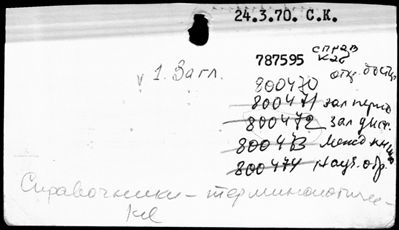 24.3.70. С.К.
справ
787595 каб
√ 1. Загл.
800470 отд. дост.
800471 зал период
800472 зал дист.
800473 Межд кн
800474 Науч. обр.
Справочники – терминологиче-